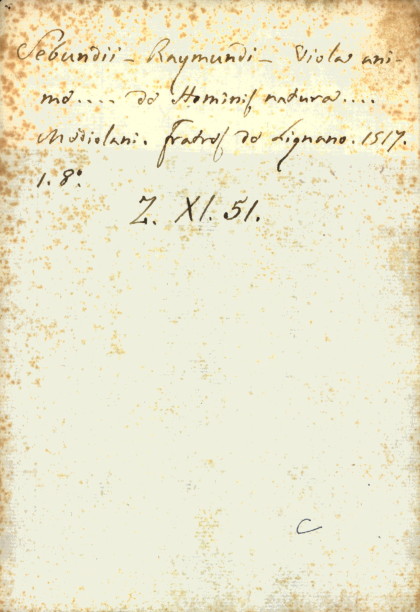 Sebundii - Raymundi - Viola ani-
me.... de Hominis natura....
Mediolani. fratres de Lignano. 1517.
1. 8º.
Z. XI. 51.
C